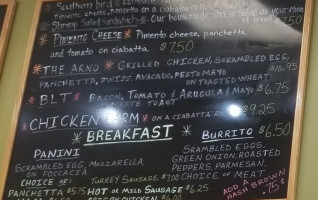 Southern Bird
Pimento cheese, pancetta on a ciabatta roll
Shrimp Salad Sandwich * Our house shrimp salad on your choice of bread 7.50
* Pimento Cheese * Pimento cheese, pancetta,
and tomato on ciabatta $7.50
* The Arno * Grilled chicken, scrambled egg, $10.95
pancetta, swiss, avocado, pesto mayo on toasted wheat
* BLT * Bacon, Tomato & Arugula / Mayo $6.75
white toast
* Chicken Parm * on a ciabatta $9.25
* Breakfast *
Burrito $6.50
Panini
Scrambled egg, mozzarella
on foccacia
Choice of:
Pancetta $5.15
Turkey Sausage $7.00
Hot or Mild Sausage $6.25
Spicy Chicken $6.00
Scrambled eggs,
green onion, roasted
peppers, parmesan,
choice of meat
Add a brown
hash 75¢